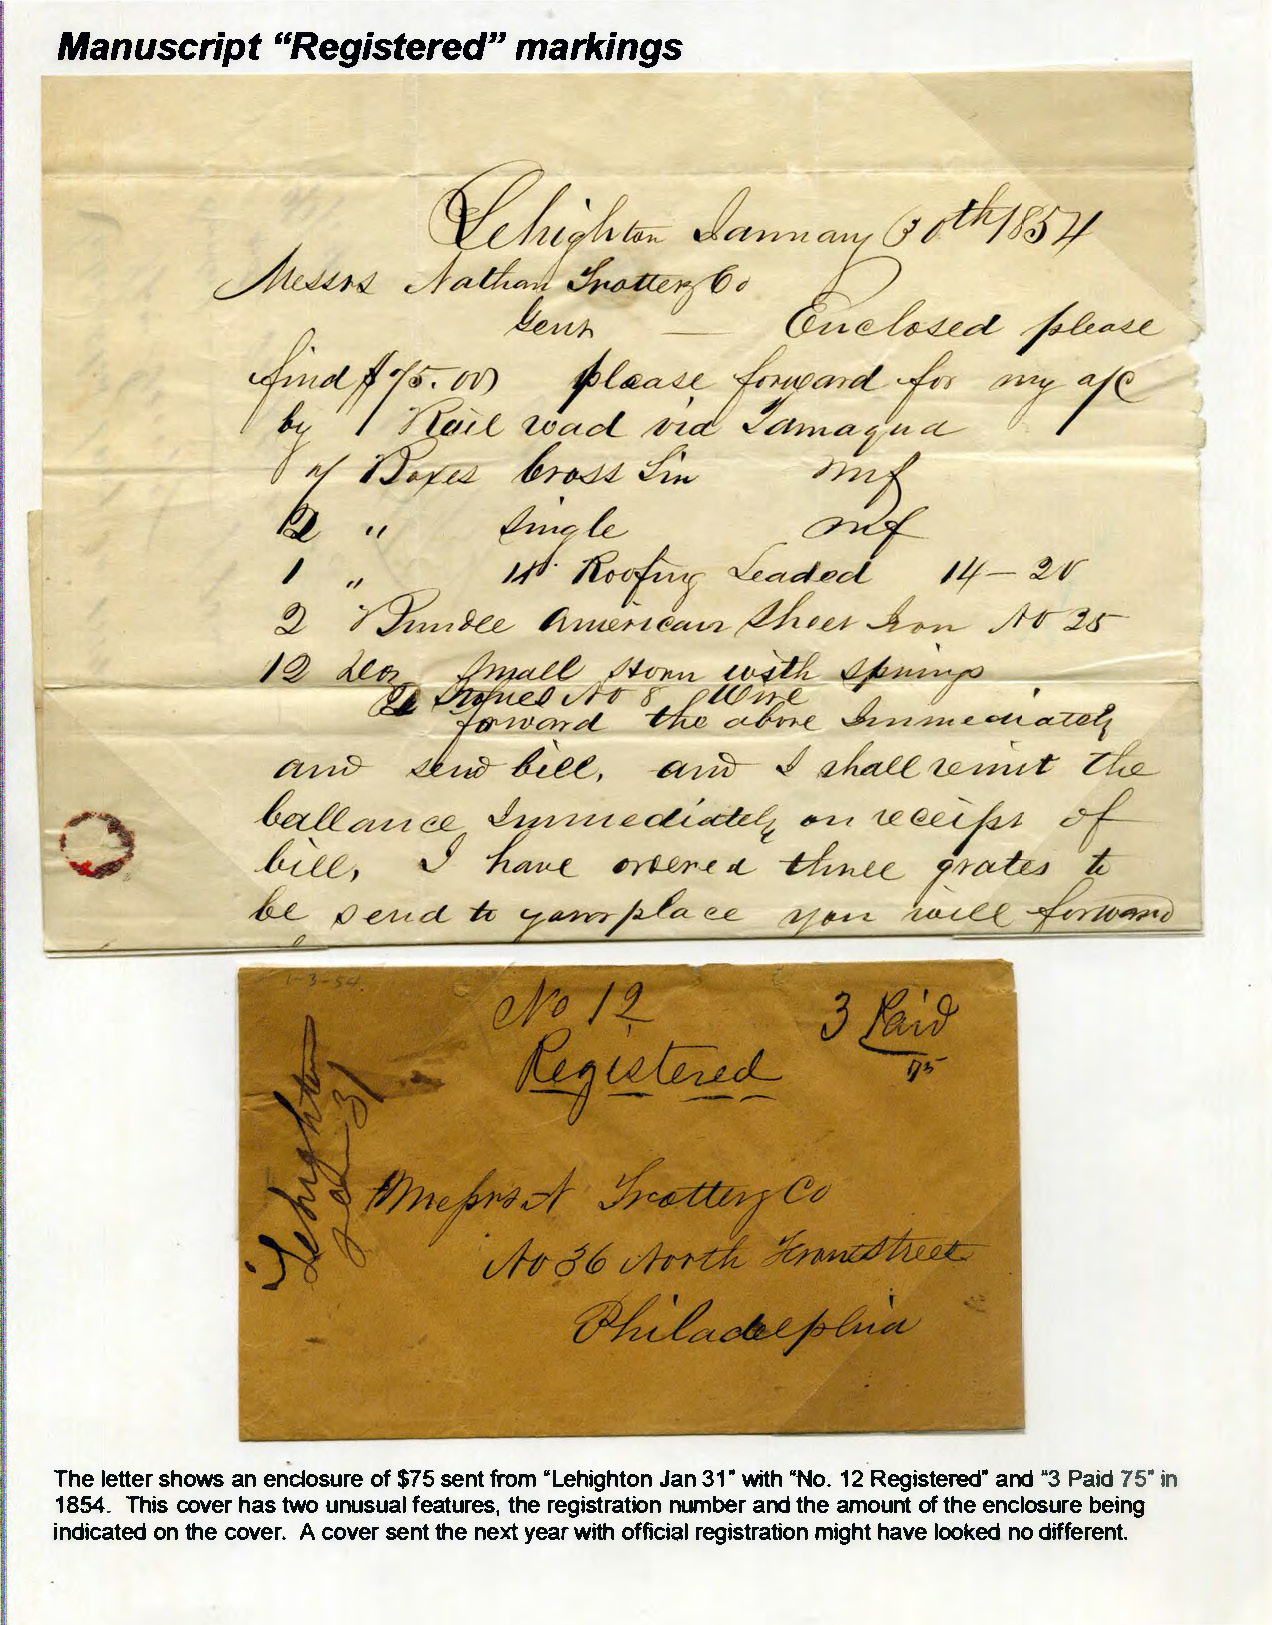 Manuscript “Registered” markings
Lehighton January 30th 1854
Messrs Nathan Trotter & Co
Gents — Enclosed please
find $75.00 please forward for my a/c
by Rail road via Tamaqua
Boxes Cross Tin
2 " Single
1 " Roofing Leaded 14 – 20
2 Bundle American Sheet Iron No 25
12 Doz Small Horn with springs
No 8 Wire
forward the above Immediately
and send bill, and I shall remit the
ballance Immediately on receipt of
bill, I have ordered three grates to
be send to your place you will forward
1-3-54.
No 12
Registered
3 Paid
75
Lehighton
Jan 31
Messrs N Trotter & Co
No 36 North Front Street
Philadelphia
The letter shows an enclosure of $75 sent from "Lehighton Jan 31" with "No. 12 Registered" and "3 Paid 75" in
1854. This cover has two unusual features, the registration number and the amount of the enclosure being
indicated on the cover. A cover sent the next year with official registration might have looked no different.